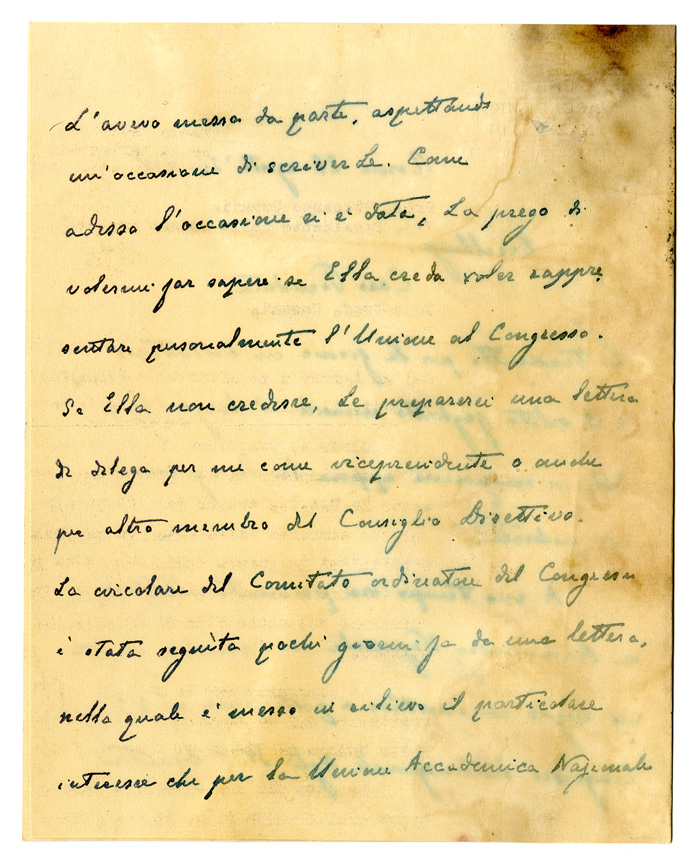 L'avevo messa da parte, aspettando
un'occasione di scriverLe. Come
adesso l'occasione si è data, La prego di
volermi far sapere se Ella creda voler rappre
sentare personalmente l'Unione al Congresso.
Se Ella non credesse, Le preparerei una lettera
di delega per me come vicepresidente o anche
per altro membro del Consiglio Direttivo.
La circolare del Comitato ordinatore del Congresso
è stata seguita pochi giorni fa da una lettera,
nella quale è messo in rilievo il particolare
interesse che per la Unione Accademica Nazionale